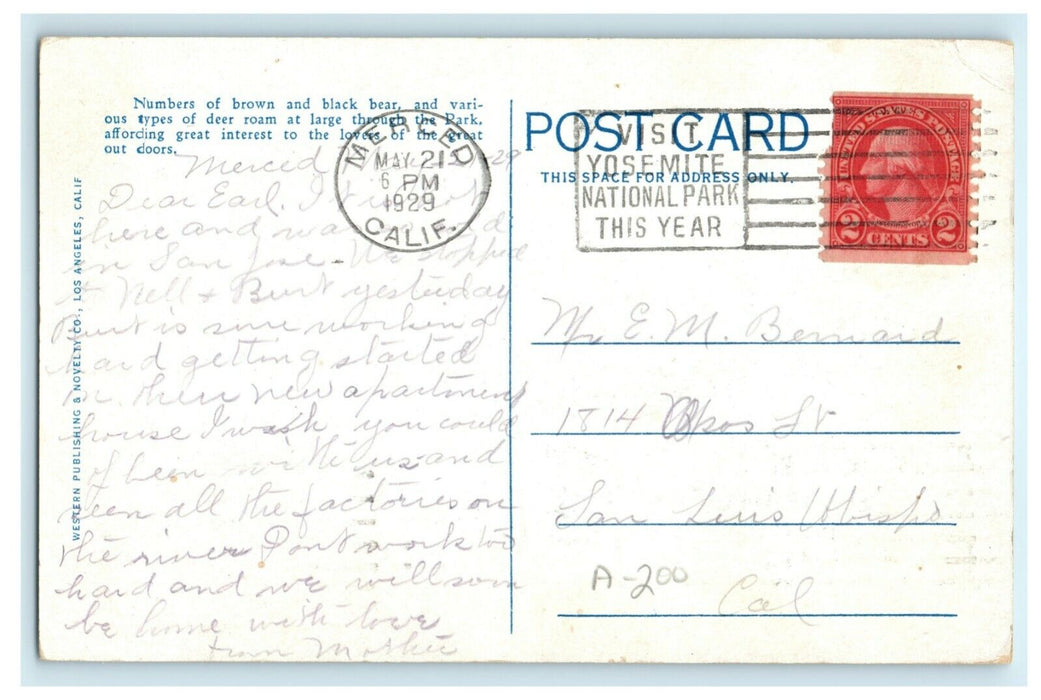 Numbers of brown and black bear, and vari-
ous types of deer roam at large through the Park,
affording great interest to the lovers of the great
out doors.
WESTERN PUBLISHING & NOVELTY CO., LOS ANGELES, CALIF
Merced 29
Dear Earl. I
here and
in San Jose - We stopped
to Nell + Burt yesterday
Burt is sure working
hard getting started
on their new apartment
house I wish you could
of been with us and
seen all the factories on
the river Dont work too
hard and we will soon
be home with love
from Mother
MERCED
MAY 21
6 PM
1929
CALIF.
POST CARD
THIS SPACE FOR ADDRESS ONLY.
VISIT
YOSEMITE
NATIONAL PARK
THIS YEAR
UNITED STATES POSTAGE
2 CENTS 2
Mr E. M. Bernard
1814 St
San Luis Obispo
Cal
A-200